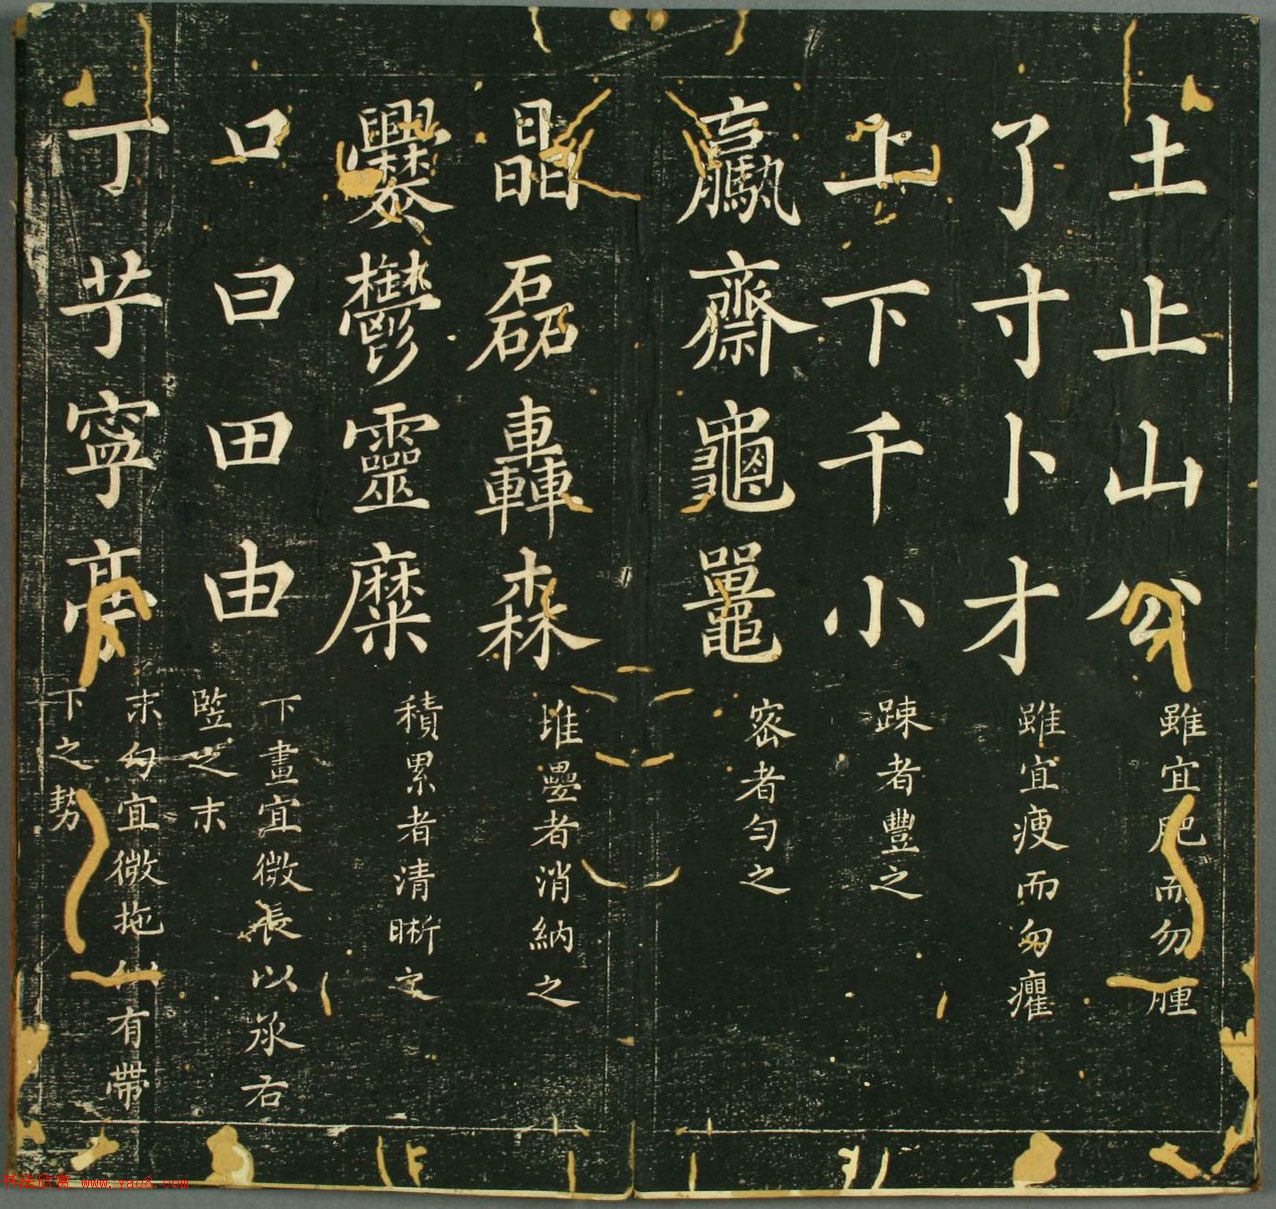 土止山公雖宜肥而勿腫
了寸卜才雖宜瘦而勿癯
上下千小踈者豐之
羸齋龜鼉密者勻之
晶磊轟森堆疊者消納之
爨鬱靈糜積累者清晰之
口曰田由下畫宜微長以承右
豎之末
丁芧寧亭末勾宜微拖似有帶
下之勢
书法欣赏 www.yac8.com